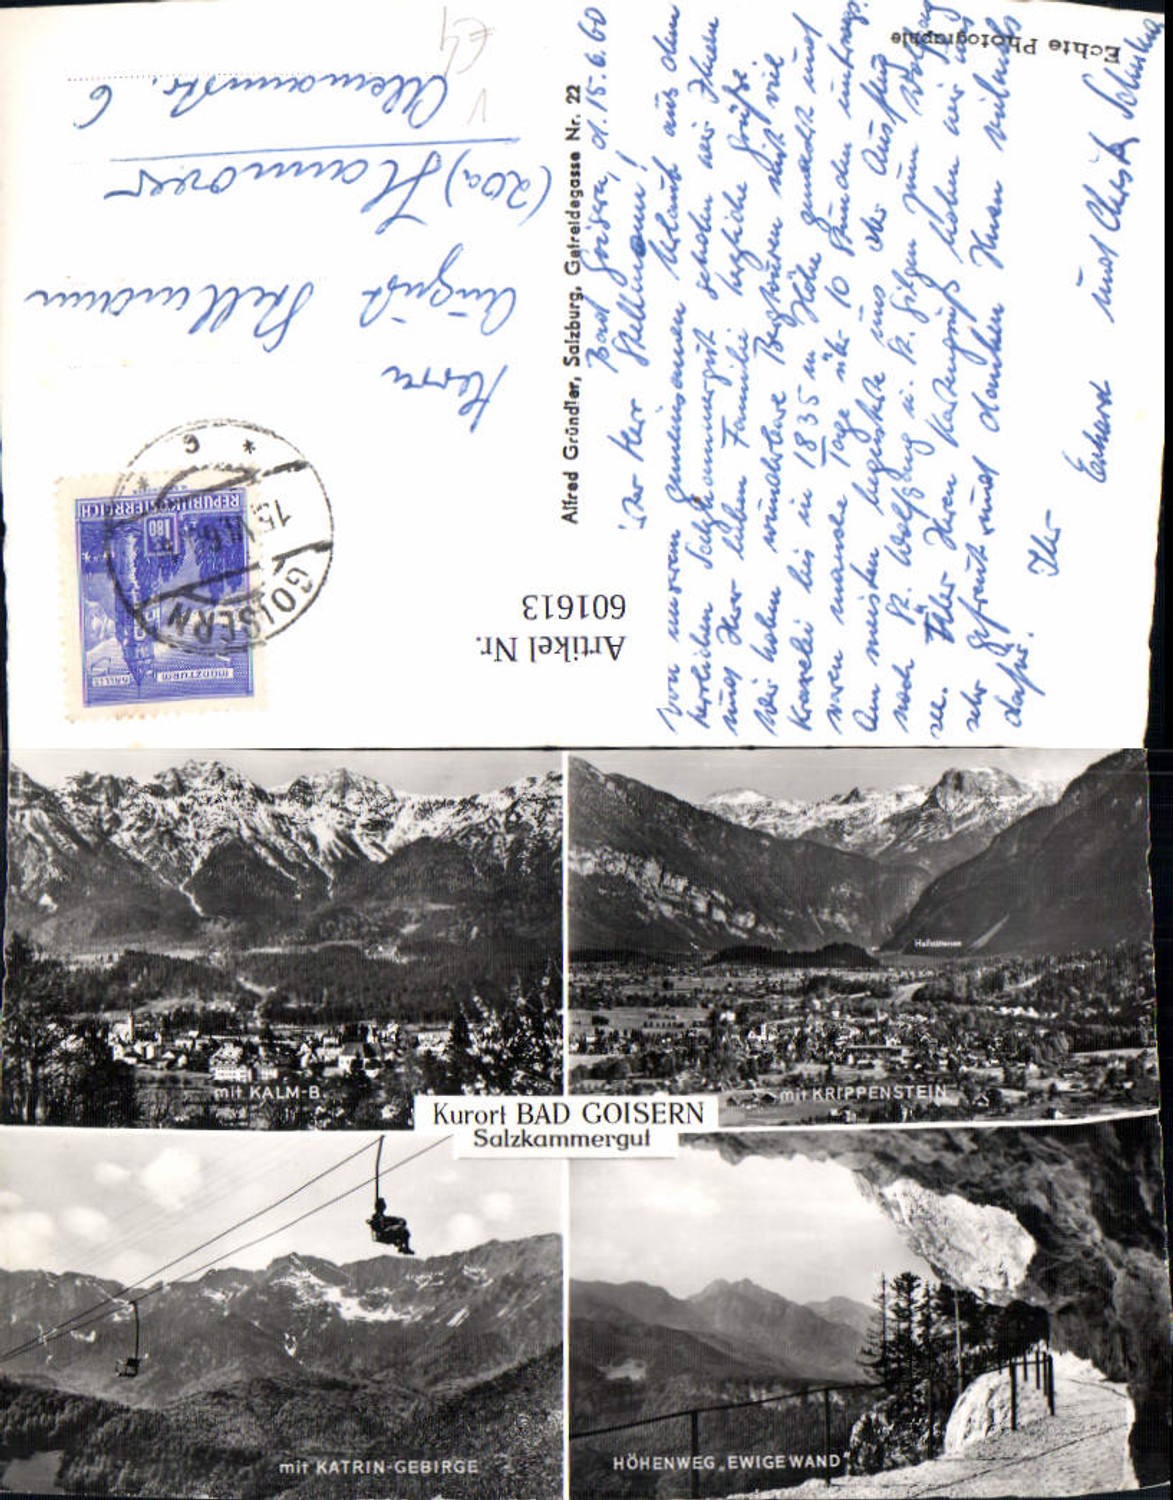 Echte Photographie
Bad Goisern, d. 15.6.60
Herr Stellmann!
von unserem gemeinsamen Urlaub aus dem
herrlichen Salzkammergut senden wir Ihnen
und Ihrer lieben Familie herzliche Grüße.
Wir haben wunderbare Bergtouren mit viel
Kraxelei bis in 1835 m Höhe gemacht und
waren manche Tage über 10 Stunden unterwegs.
Am meisten begeisterte uns der Ausflug
nach St. Wolfgang u. St. Gilgen zum Wolfgang
see. Über Ihren Kartengruß haben wir uns
sehr gefreut und danken Ihnen vielmals
dafür.
Ihr Erhard und Christa
Alfred Gründler, Salzburg, Getreidegasse Nr. 22
Herrn
August Stellmann
(20a) Hannover
Alemannstr. 6
REPUBLIK ÖSTERREICH
1.80
MÜNZTURM
HALL I.T.
GOISERN
15.VI.6
* c *
Artikel Nr.
601613
Hallstättersee
mit KALM-B.
mit KRIPPENSTEIN
Kurort BAD GOISERN
Salzkammergut
mit KATRIN-GEBIRGE
HÖHENWEG „EWIGE WAND"